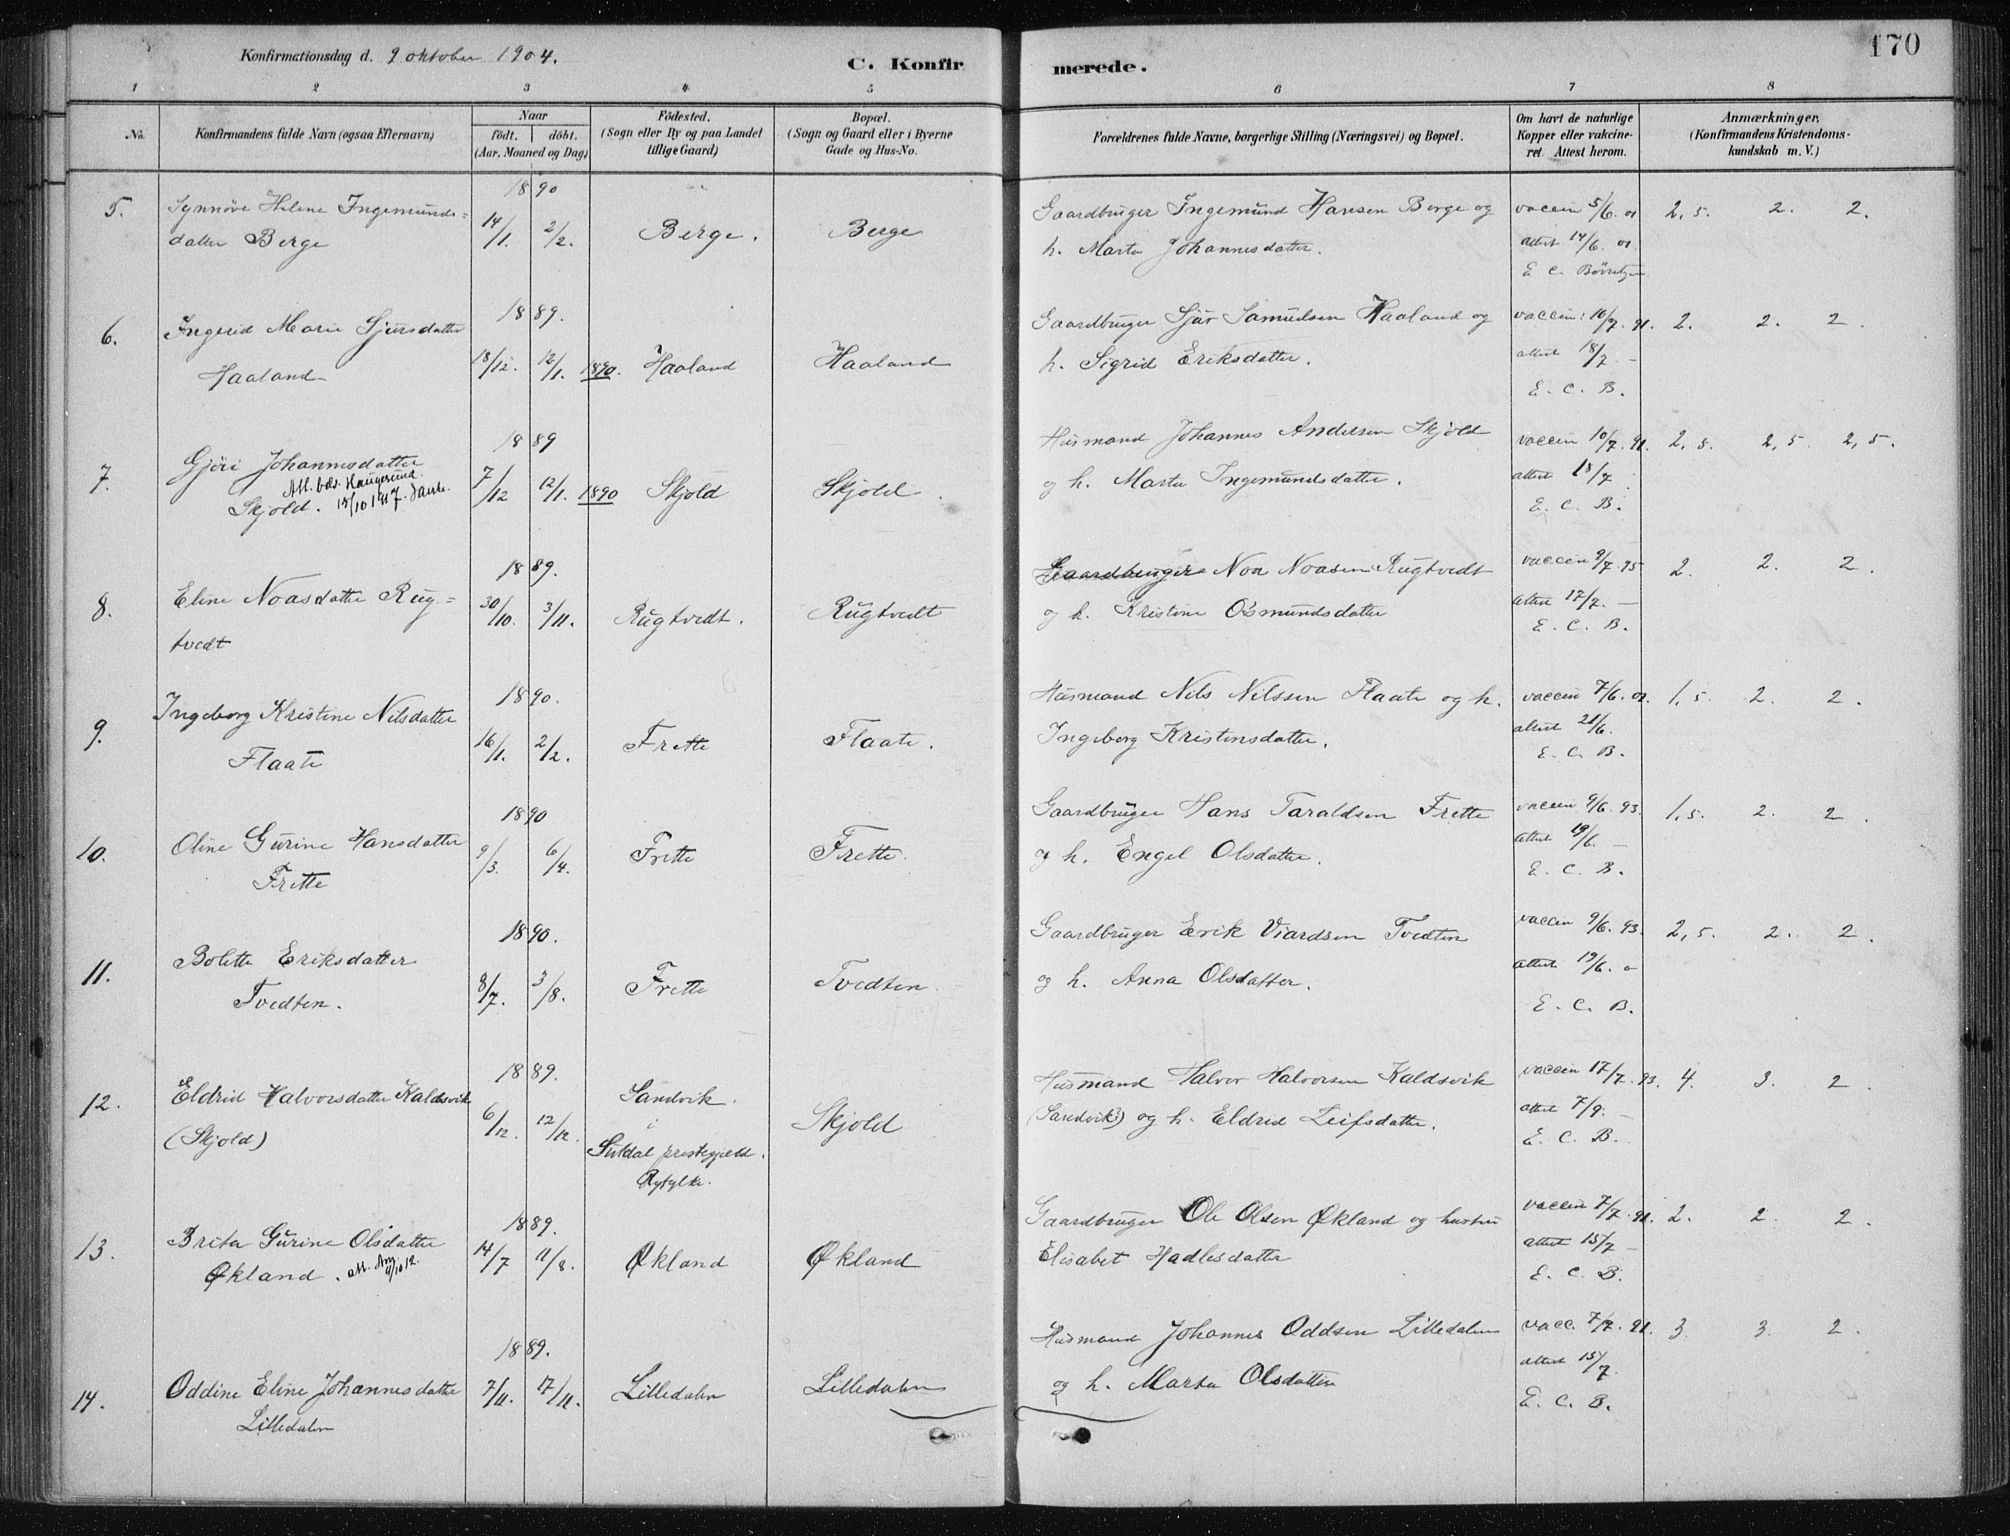 170
Konfirmationsdag d. 9 oktober 1904.
C. Konfirmerede.
1 2 3 4 5 6 7 8
No.
Konfirmandens fulde Navn (ogsaa Efternavn)
Naar
födt. döbt.
(Aar, Maaned og Dag)
Födested.
(Sogn eller By og paa Landet
tillige Gaard)
Bopæl.
(Sogn og Gaard eller i Byerne
Gade og Hus-No.
Forældrenes fulde Navne, borgerlige Stilling (Næringsvei) og Bopæl.
Om havt de naturlige
Kopper eller vakcine-
ret. Attest herom.
Anmærkninger.
(Konfirmandens Kristendoms-
kundskab m. V.)
5. Synnöve Helene Ingemunds-
datter Berge
1890
14/1. 2/2.
Berge.
Berge
Gaardbruger Ingemund Hansen Berge og
h. Marta Johannesdatter.
vaccin 5/6. 01
attest 14/6. 01.
E. C.
2,5. 2. 2.
6. Ingerid Marie Sjursdatter
Haaland
1889.
18/12. 12/1. 1890.
Haaland
Haaland
Gaardbruger Sjur Samuelsen Haaland og
h. Sigrid Eriksdatter.
vaccin: 10/7. 91.
attest 18/7 –
E. C. B.
2. 2. 2.
7. Gjöri Johannesdatter
Att. bes. Haugesund
Skjold. 15/10 1917.
1889
7/12 12/1. 1890
Skjold
Skjold.
Husmand Johannes Andersen Skjold
og h. Marta Ingemundsdatter.
vaccin 10/7. 91.
attest 18/7.
E. C. B.
2,5. 2,5 2,5.
8. Eline Noasdatter Rug-
tvedt
1889.
30/10. 3/11.
Rugtvedt.
Rugtvedt
Gaardbruger Noa Noasen Rugtvedt
og h. Kristine Osmundsdatter
vaccin 9/7. 95
attest 17/7. –
E. C. B.
2. 2. 2.
9. Ingeborg Kristine Nilsdatter
Flaate
1890.
16/1. 2/2.
Frette
Flaate.
Husmand Nils Nilssen Flaate og h.
Ingeborg Kristensdatter.
vaccin 7/6. 01.
attest 21/6.
E. C. B.
1,5. 2. 2.
10. Oline Gurine Hansdatter
Frette
1890
9/3. 6/4.
Frette
Frette.
Gaardbruger Hans Taraldsen Frette
og h. Engel Olsdatter.
vaccin 9/6. 93.
attest 19/6. –
E. C. B.
1,5. 2. 2.
11. Bolette Eriksdatter
Tvedten.
1890.
8/7. 3/8.
Frette
Tvedten.
Gaardbruger Erik Viardsen Tvedten
og h. Anna Olsdatter.
vaccin 9/6. 93.
attest 19/6.
E. C. B.
2,5. 2. 2.
12. Eldrid Halvorsdatter Kaldsvik
(Skjold)
1889.
6/12. 12/12.
Sandvik.
i
Suldal prestegjeld.
Ryfylke.
Skjold
Husmand Halvor Halvorsen Kaldsvik
(Sandvik?) og h. Eldrid Leifsdatter.
vaccin 17/7. 93.
attest 7/9. –
E. C. B.
4. 3. 2
13. Brita Gurine Olsdatter
Økland. att. Aug 4/10 12.
1889.
14/7 11/8.
Økland
Økland
Gaardbruger Ole Olsen Økland og hustru
Elisabet Hadlesdatter
vaccin 7/7. 91.
attest 15/7 –
E. C. B.
2. 2. 2.
14. Oddine Eline Johannesdatter
Lilledalen
1889.
7/11. 17/11.
Lilledalen
Lilledalen
Husmand Johannes Oddsen Lilledalen
og h. Marta Olsdatter
vacc. 7/7. 91.
attest 15/7
E. C. B.
3. 3. 2.